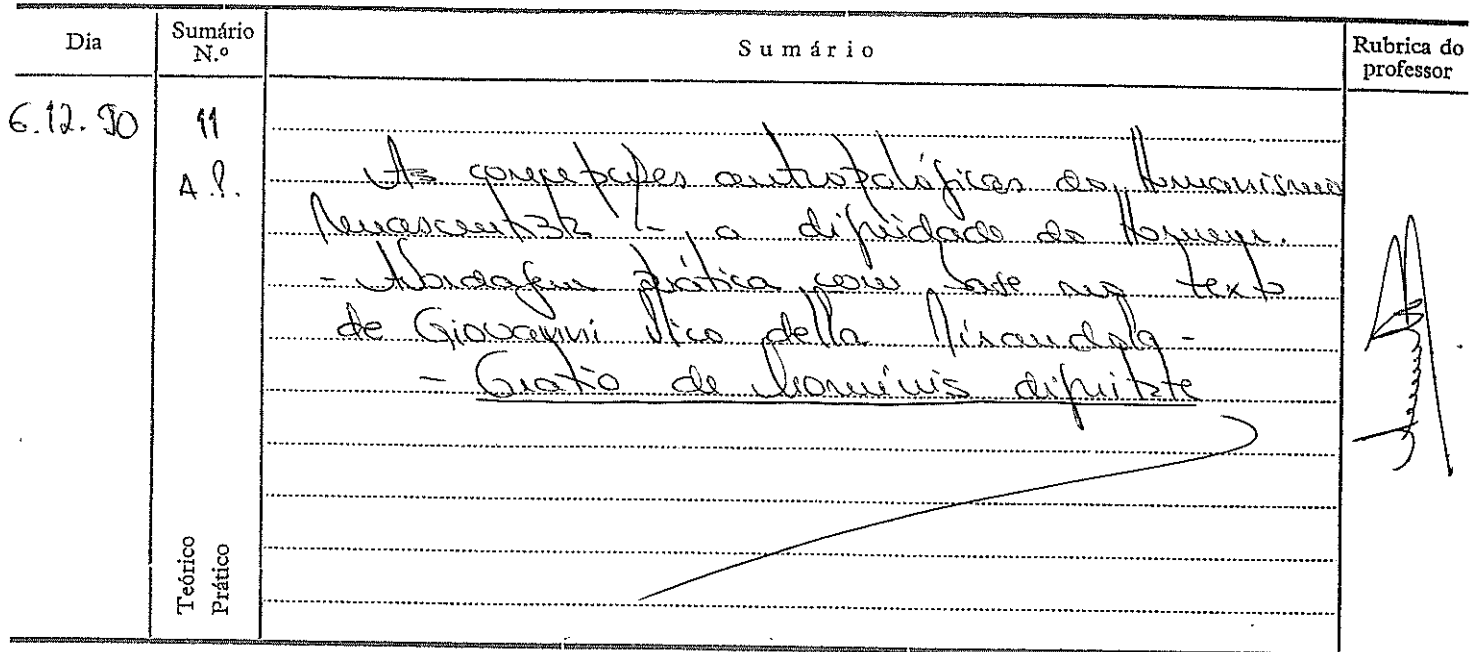 Dia
Sumário N.º
Sumário
Rubrica do professor
6.12.90
11
A.P.
As concepções antropológicas do Humanismo
Renascentista - a dignidade do Homem.
- Abordagem prática com base no texto
de Giovanni Pico della Mirandola -
- Oratio de hominis dignitate
Teórico
Prático